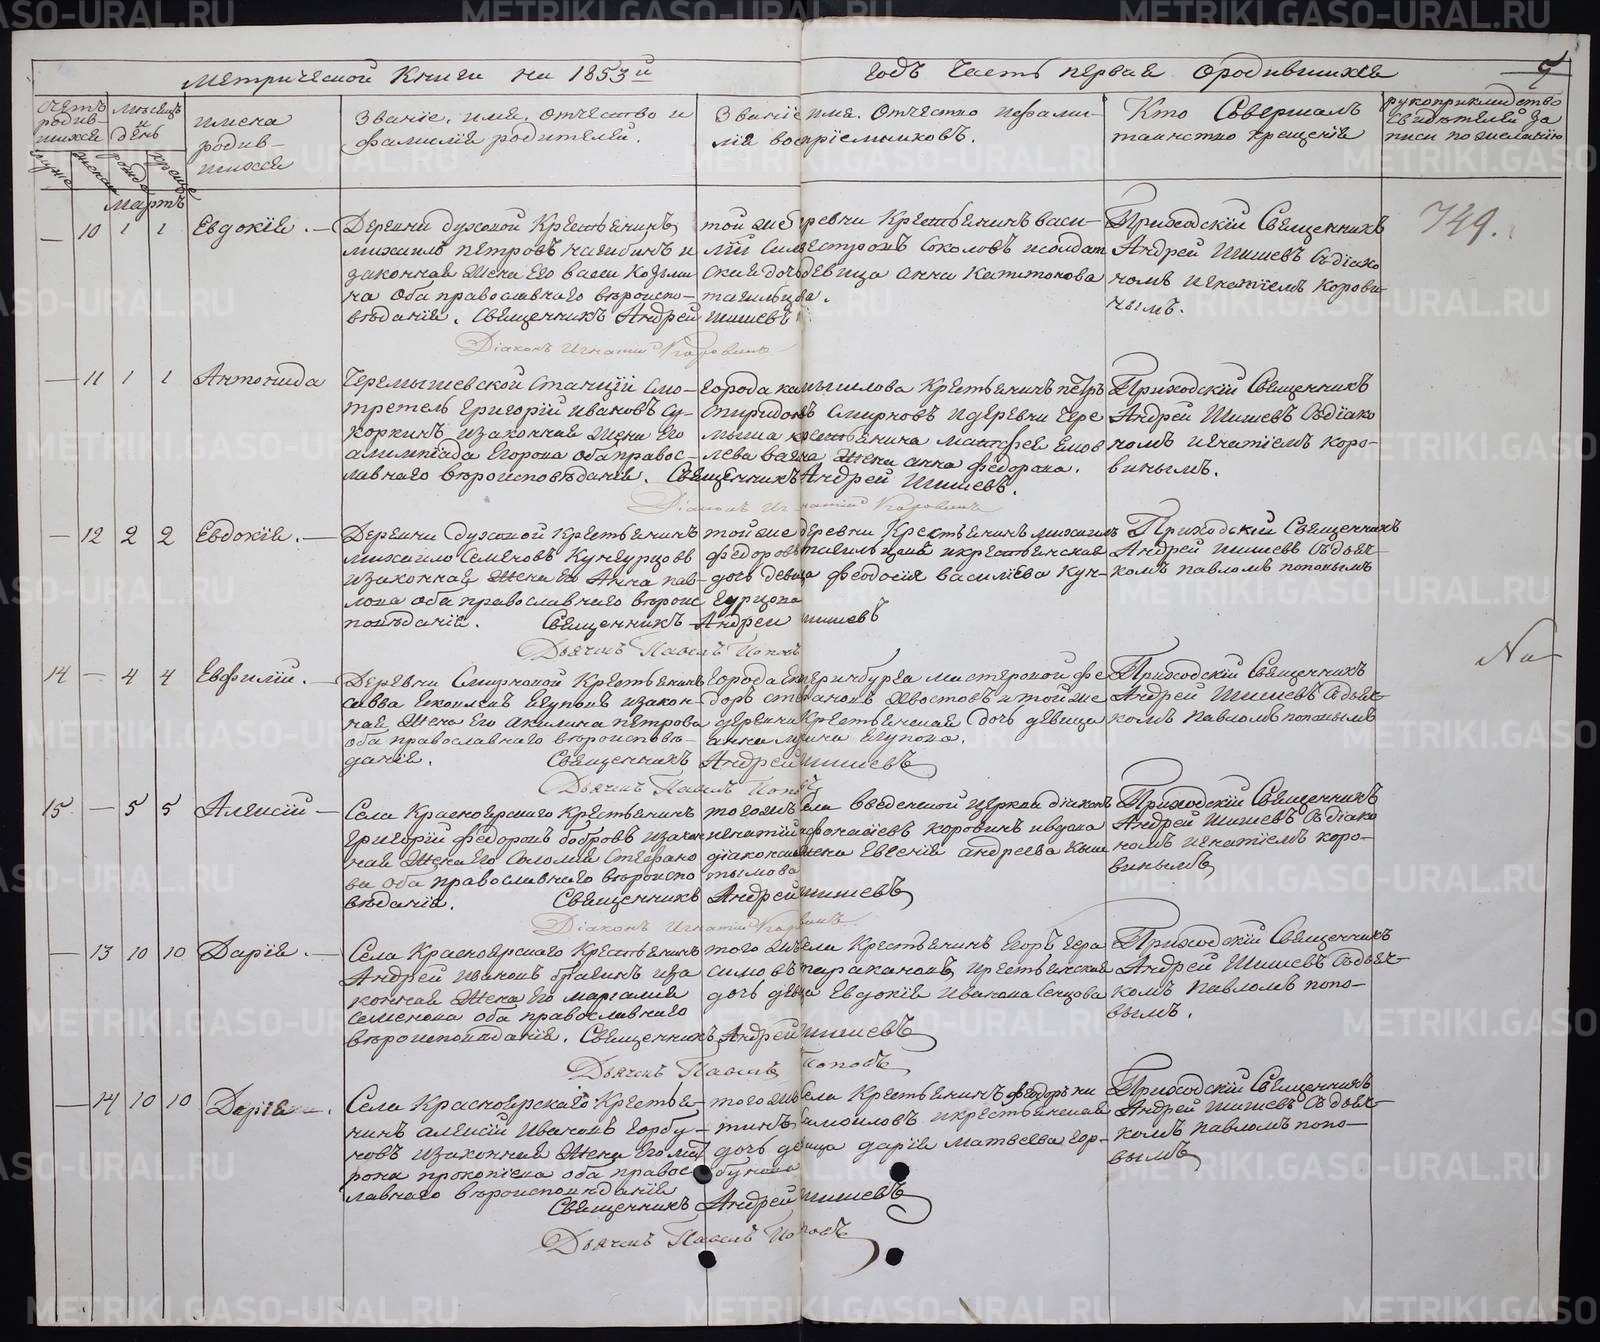 Метрической Книги на 1853й годъ Часть первая о родившихся
Счетъ родив-шихся
Мѣсяцъ и день
Имена родив-шихся
Званіе, имя, отчество и фамилія родителей.
Званіе имя, отчество и фами-лія воспріемниковъ.
Кто Совершалъ таинство крещенія
рукоприкладство свидѣтелей за писи по желанію
Мартъ
10 1 1 Евдокія.
Деревни Духовой Крестьянинъ
Михаилъ Петровъ Нагибинъ и
законная жена Его Васса Козьми
на оба православнаго вѣроиспо-
вѣданія. Священникъ Андрей Шишевъ
той же деревни Крестьянинъ Васи-
лій Силвестровъ Соколовъ и солдат
ская дочь девица Анна Капитонова
Приходскій Священникъ
Андрей Шишевъ съ діако
номъ Игнатіемъ Корови-
нымъ.
749.
Діаконъ Игнатій Коровинъ
11 1 1 Антонида
Черемышевской Станціи Смо-
тритель Григорій Ивановъ Су-
коркинъ и законная жена Его
Олимпіада Егорова оба правос-
лавнаго вѣроисповѣданія. Священникъ Андрей Шишевъ.
города Камышлова Крестьянинъ Петръ
Спиридоновъ Смирновъ и деревни Чере
мыша крестьянина Матфея
жена Анна Федорова.
Приходскій Священникъ
Андрей Шишевъ съ діако
номъ Игнатіемъ Коро-
винымъ.
Діаконъ Игнатій Коровинъ
12 2 2 Евдокія.
Деревни Духовой Крестьянинъ
Михаило Семеновъ Кунгурцовъ
и законная жена Его Анна Пав-
лова оба православнаго вѣроис
повѣданія. Священникъ Андрей Шишевъ
той же деревни Крестьянинъ Михаилъ
Федоровъ и крестьянская
дочь девица Феодосія Василіева Кун-
гурцова
Приходскій Священникъ
Андрей Шишевъ съ дьяч-
комъ Павломъ Поповымъ
Дьячекъ Павелъ Поповъ
14 4 4 Евфимій.
Деревни Смирновой Крестьянинъ
Савва Егуповъ и закон-
ная жена Его Акилина Петрова
оба православнаго вѣроисповѣ-
данія. Священникъ Андрей Шишевъ
города Екатеринбурга мастеровой Фе
доръ Степановъ Хвостовъ и той же
деревни Крестьянская дочь девица
Анна Егупова.
Приходскій Священникъ
Андрей Шишевъ съ дьяч-
комъ Павломъ Поповымъ
Дьячекъ Павелъ Поповъ
15 5 5 Алексій
Села Красноярскаго Крестьянинъ
Григорій Федоровъ Бобровъ и закон
ная жена Его Соломія Стефано
ва оба православнаго вѣроиспо
вѣданія. Священникъ Андрей Шишевъ
того же села Введенской церкви діаконъ
Игнатій Афонасіевъ Коровинъ и вдова
Евгенія Андреева
Приходскій Священникъ
Андрей Шишевъ съ діако
номъ Игнатіемъ Коро-
винымъ
Діаконъ Игнатій Коровинъ
13 10 10 Дарія.
Села Красноярскаго Крестьянинъ
Андрей Ивановъ Брагинъ и за
конная жена Его
Семенова оба православнаго
вѣроисповѣданія. Священникъ Андрей Шишевъ
того же села Крестьянинъ Егоръ Гера
симовъ Таракановъ и крестьянская
дочь девица Евдокія Иванова Сенцова
Приходскій Священникъ
Андрей Шишевъ съ дьяч-
комъ Павломъ Попо-
вымъ.
Дьячекъ Павелъ Поповъ
14 10 10 Дарія.
Села Красноярскаго Крестья-
нинъ Алексій Ивановъ Горбу-
новъ и законная жена Его Мат
рона Прокопіева оба правос
лавнаго вѣроисповѣданія
Священникъ Андрей Шишевъ
того же села Крестьянинъ Федоръ
Самоиловъ и крестьянская
дочь девица Дарія Матвеева Гор-
бунова
Приходскій Священникъ
Андрей Шишевъ съ дьяч-
комъ Павломъ Попо-
вымъ
Дьячекъ Павелъ Поповъ
METRIKI.GASO-URAL.RU